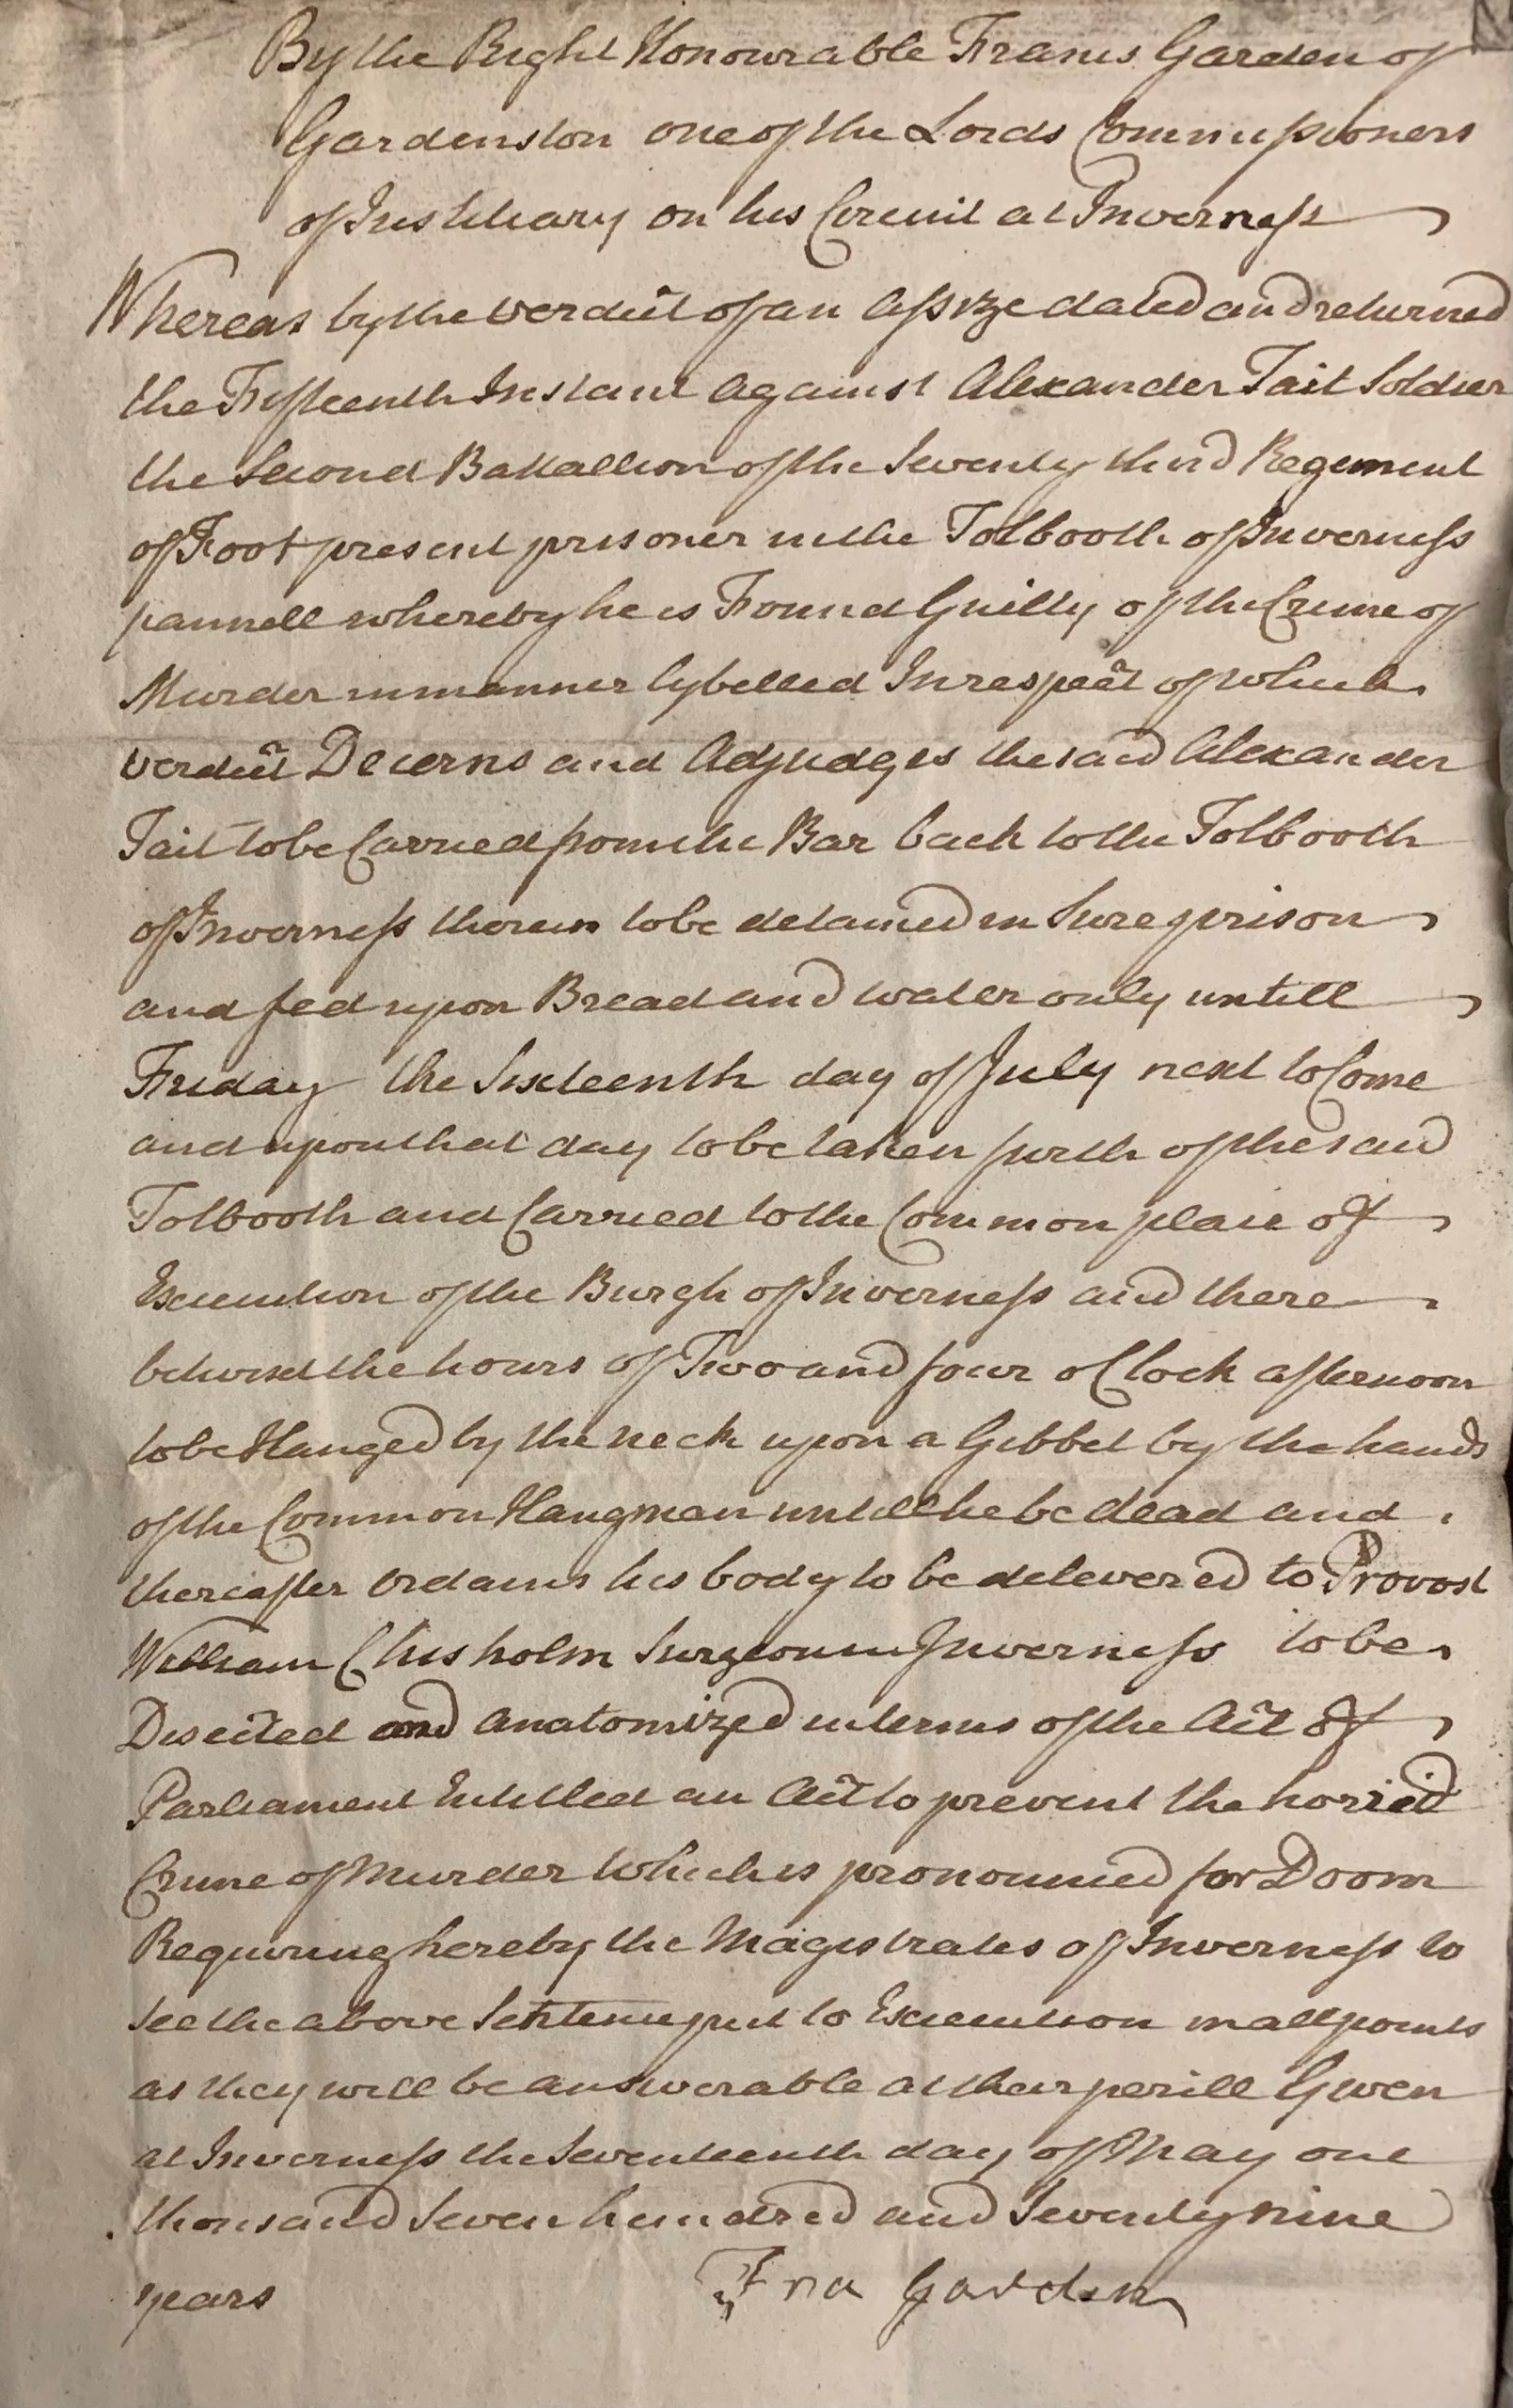 By the Right Honourable Francis Garden of
Gardenston one of the Lords Commissioners
of Justiciary on his Circuit at Inverness
Whereas by the verdict of an Assize dated and returned
the Fifteenth Instant against Alexander Tait Soldier
the Second Battallion of the Seventy third Regement
of Foot present prisoner in the Tolbooth of Inverness
pannell whereby he is Found Guilty of the Crime of
Murder in manner lybelled In respect of which
verdict Decerns and Adjudges the said Alexander
Tait to be Carried from the Bar back to the Tolbooth
of Inverness therein to be detained in Sure prison
and fed upon Bread and water only untill
Friday the Sixteenth day of July next to Come
and upon that day to be taken furth of the said
Tolbooth and Carried to the Common place of
Execution of the Burgh of Inverness and there
betwixt the hours of Two and four o Clock afternoon
to be Hanged by the neck upon a Gibbet by the hands
of the Common Hangman untill he be dead and
thereafter Ordains his body to be delevered to Provost
William Chisholm Surgeon in Inverness to be
Disected and anatomized in terms of the Act of
Parliament Intitled an Act to prevent the horrid
Crime of Murder Which is pronounced for Doom
Requiring hereby the Magistrates of Inverness to
see the above Sentence put to Execution in all points
as they will be answerable at their perill Given
at Inverness the Seventeenth day of May one
thousand Seven hundred and Seventy nine
years Fra Garden